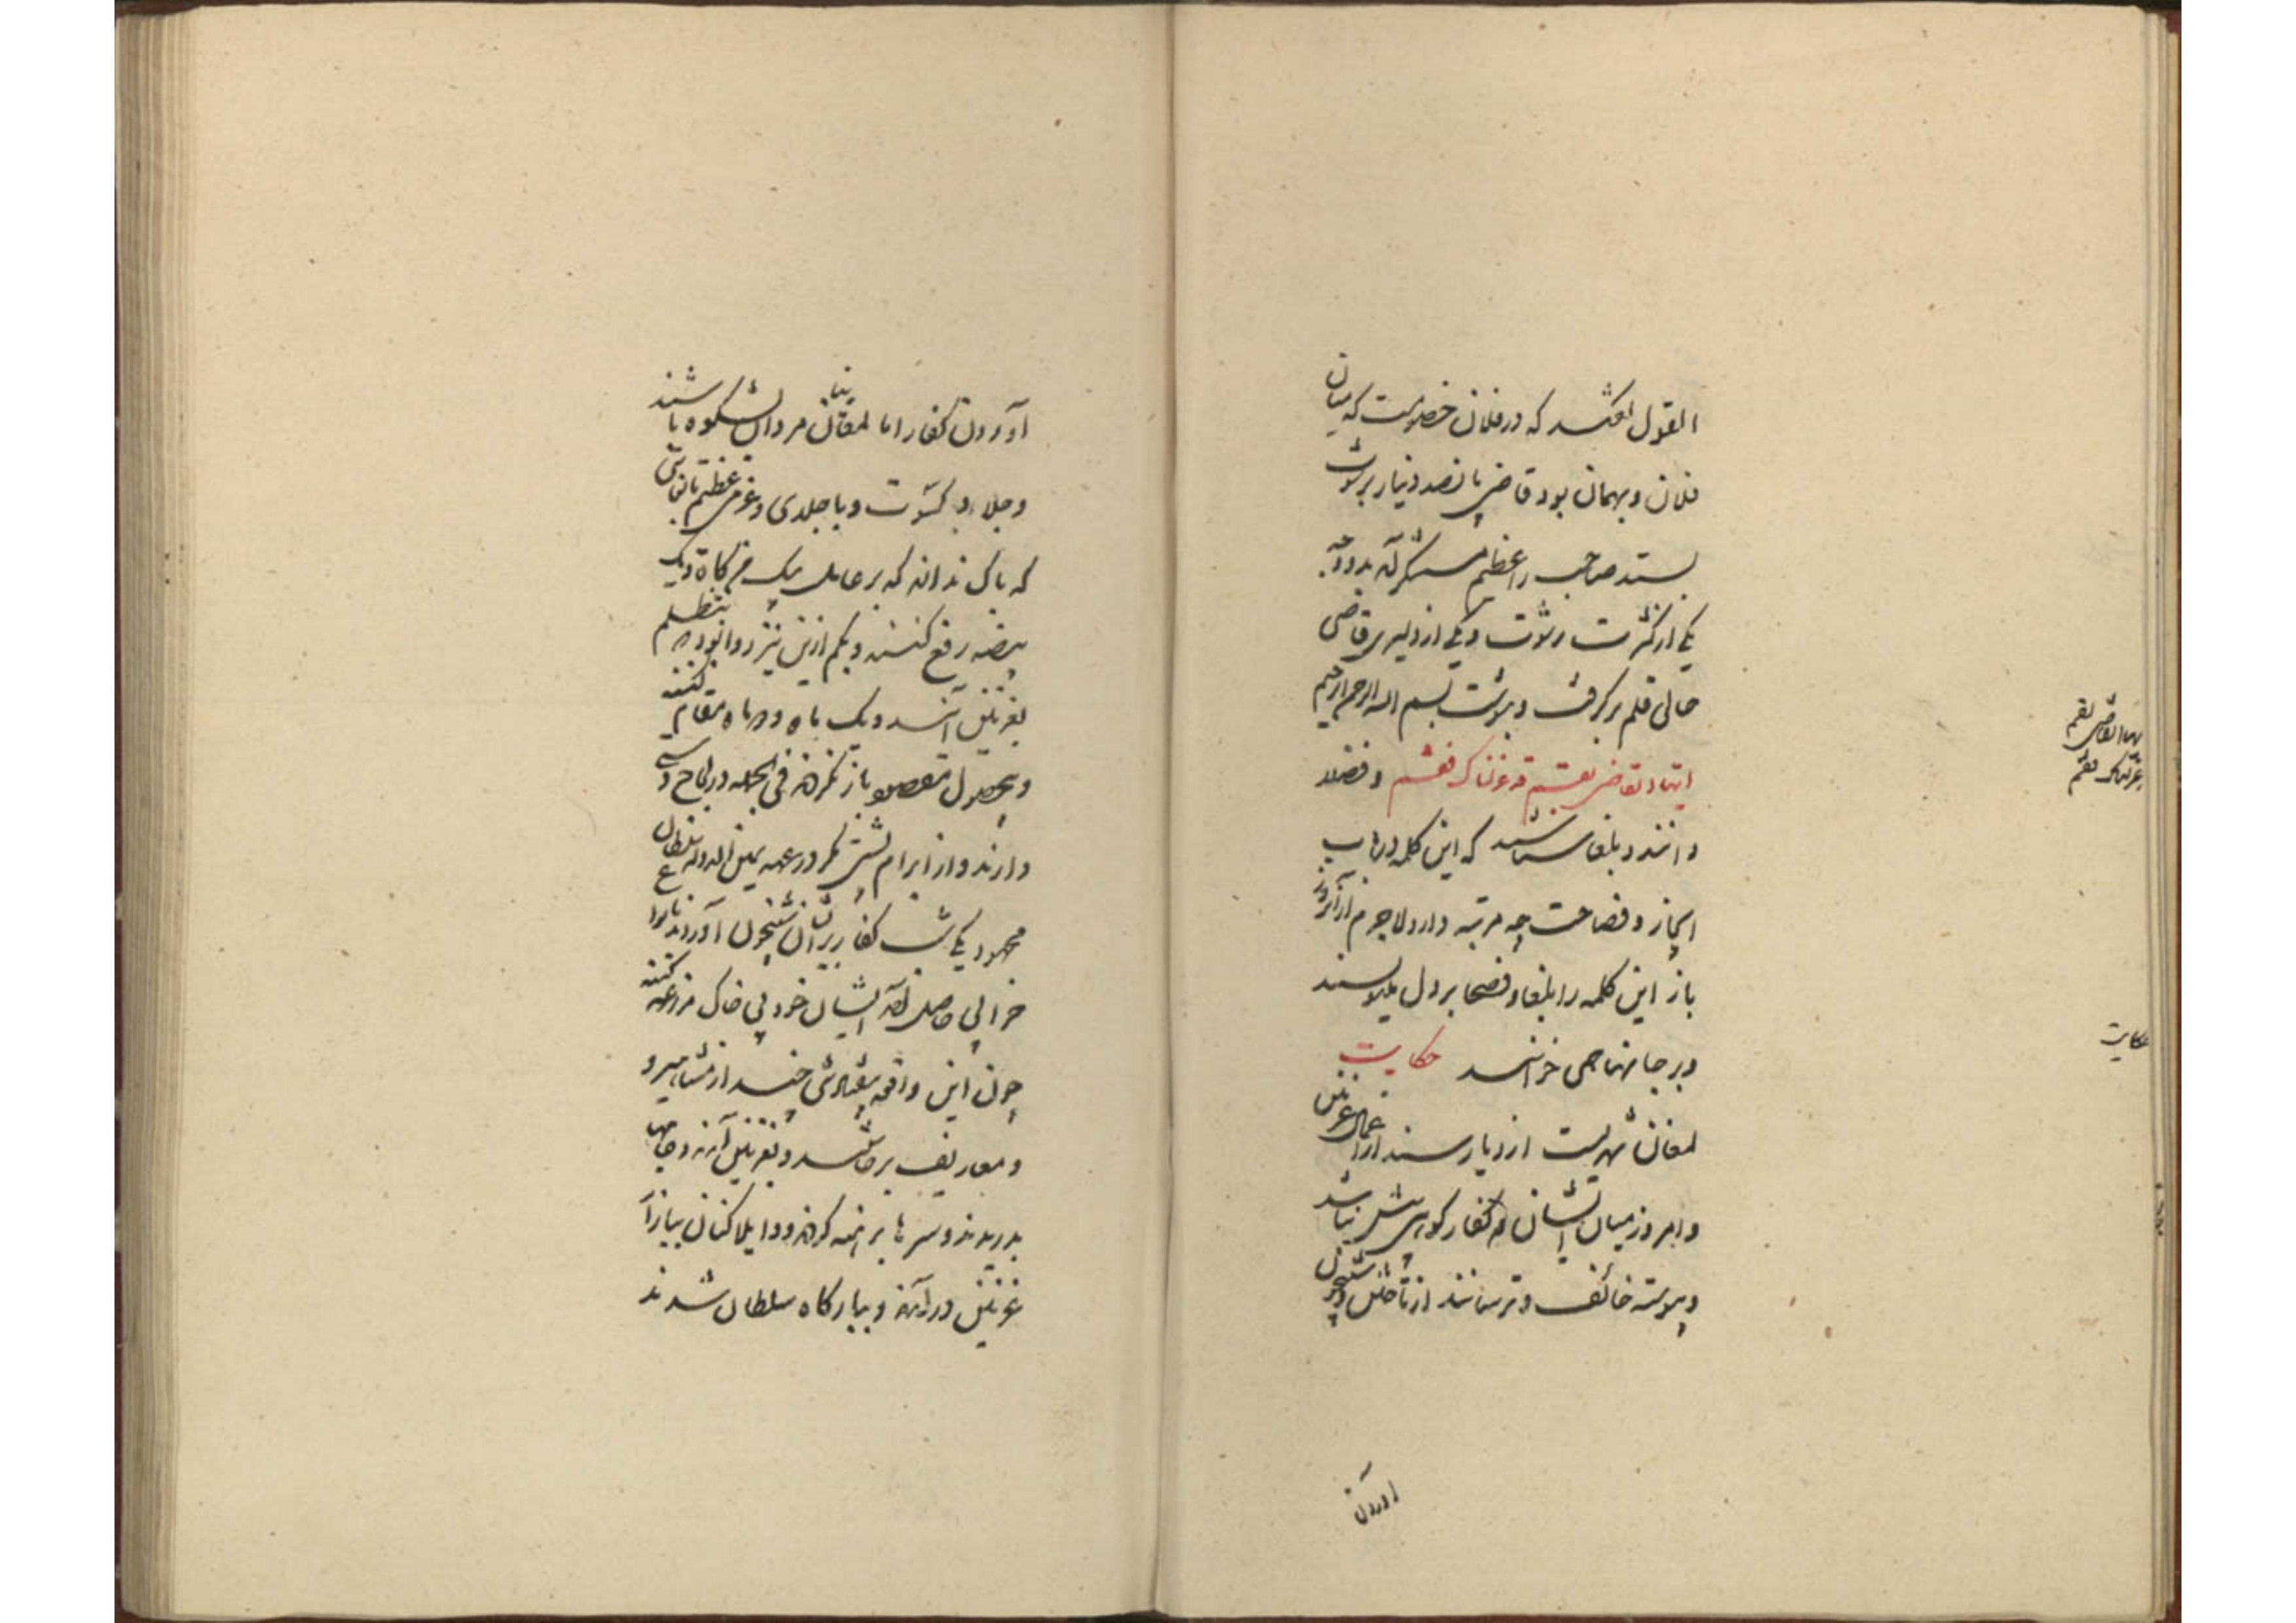 القول گفتند که در فلان خصومت که میان
فلان و بهمان بود قاضی پانصد دینار رشوت
بستد صاحب را عظیم مستنکر آمد بدو وجه
یکی از کثرت رشوت و یکی از دلیری قاضی
حالی قلم برگرفت و بنوشت بسم الله الرحمن الرحیم
ایها القاضی بقم قد عزلناک فقم و فضلا
دانند و بلغا شناسند که این کلمه در باب
ایجاز و فصاحت چه مرتبه دارد لاجرم از آنروز
باز این کلمه را بلغا و فصحا بر دل می نویسند
و بر جانها همی خوانند حکایت
لمغان شهریست از دیار سند از اعمال غزنین
و امروز میان ایشان و کفار کوهی بیش نباشد
و پیوسته خائف و ترسانند از تاختن و شبیخون
آوردن
ایها القاضی بقم
عزلناک فقم
حکایت
آوردن کفار اما لمقانیان مردان بشکوه باشند
و جلد و کسوت و با جلدی و غرمی عظیم تا بغایتی
که باک ندارند که بر عامل یک من کاه و یک
بیضه رفع کنند و بکم ازین نیز روا بود که بتظلم
بغزنین آیند و یک ماه و دو ماه مقام کنند
و بی حصول مقصود باز نگردند فی الجمله در لجاج دستی
دارند و از ابرام پشتی مگر در عهد یمین الدوله سلطان
محمود یکی شب کفار بر ایشان شبیخون آوردند با نوع
خرابی حاصل آمد ایشان خود بی خاک مراغه کنند
چون این واقعه بیفتاد تنی چند از مشاهیر و
و معاریف برخاستند و بغزنین آمدند و جامها
بدریدند و سرها برهنه کردند و واویلا کنان ببازار
غزنین درآمدند و ببارگاه سلطان شدند